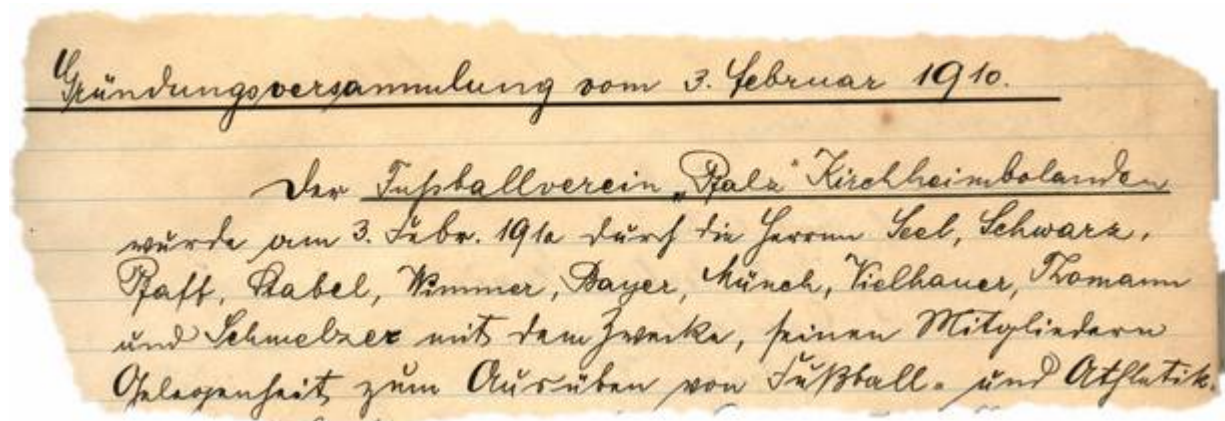 Gründungsversammlung vom 3. Februar 1910.
Der Fußballverein „Pfalz" Kirchheimbolanden
wurde am 3. Febr. 1910 durch die Herren Seel, Schwarz,
Pfaff, Stabel, Wimmer, Bayer, Münch, Vielhauer, Thomann
und Schmelzer mit dem Zwecke, seinen Mitgliedern
Gelegenheit zum Ausüben von Fußball- und Athletik-